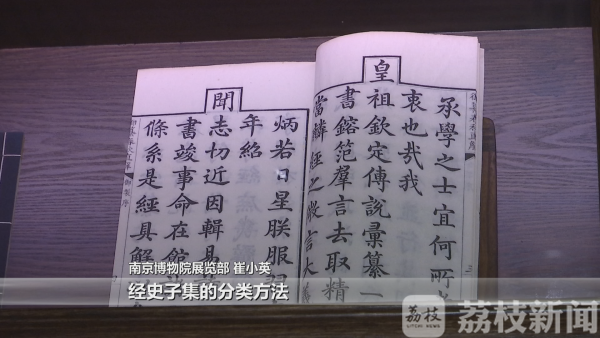 承學之士宜何所
衷也哉我
皇祖欽定傳說彙纂一
書鎔笵羣言去取精
當麟經之微言大
炳若日星朕服
年紹
聞志切近因輯易
書竣事命在館
條系是經具解
南京博物院展览部 崔小英
经史子集的分类方法
荔枝
LITCHI NEWS
荔枝新闻